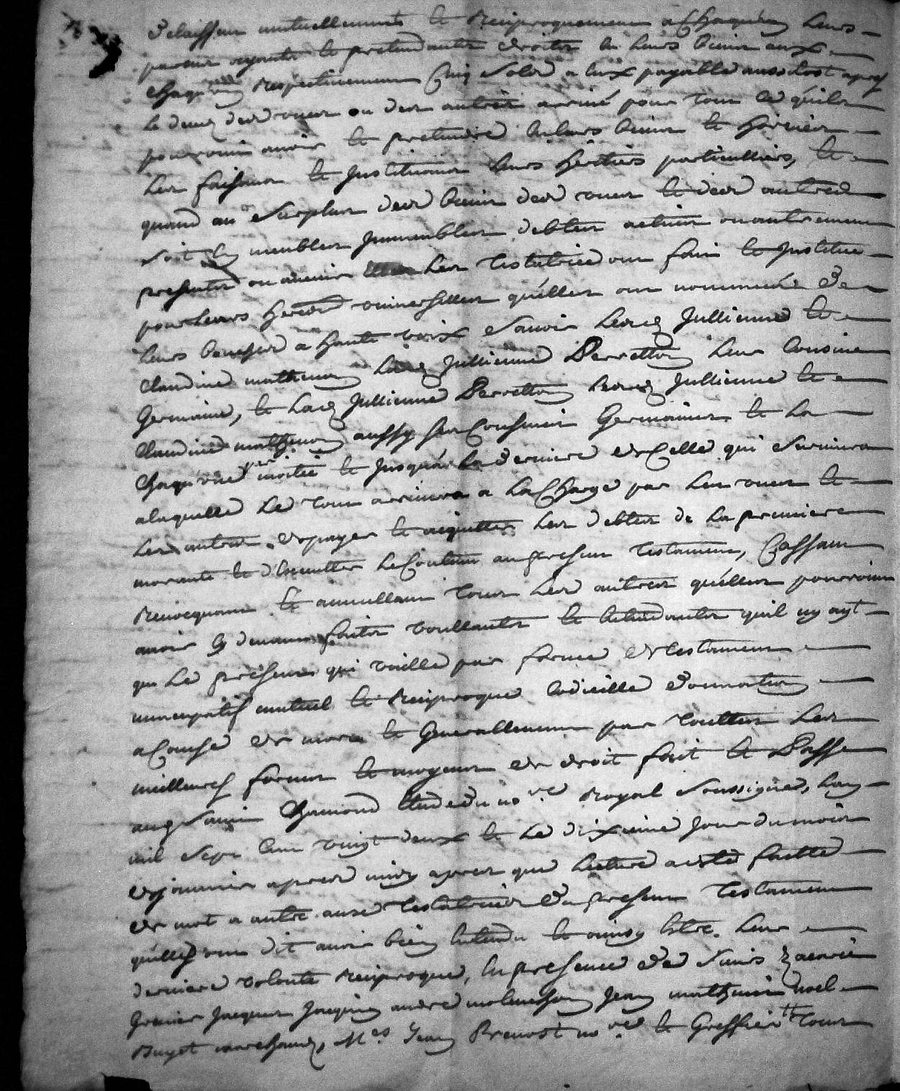 Delaissem mutuellement et Reciproquement a Chaquun leurs
parens ayants et pretendants droits en leurs biens aux
Chaquun Respectivement Cinq Sols a eux payable aussitost apres
le decez des unes ou des autres arrivé pour tout ce quils
pourroint avoir et pretendre en leurs biens et hoiries
les faisant et Instituant leurs heritiers particulliers, et
quand au Surplus des biens des unes et des autres
soit meubles Immeubles debtes actives ou autrement
presents ou avenir les Testatrices ont fait et Institué
pour leurs heres universelles quelles ont nommées de
leurs bouches a haute voix Scavoir lad Jullienne et
Claudine mathevon lad Jullienne Perretton leur Cousine
Germaine, et lad Jullienne Perretton lesd Jullienne et
Claudine mathevon aussy ses Cousines Germaines et la
Chaqu'une moitié et Jusqua la derniere de Celle qui Survivra
alaquelle le tout arrivera a la Charge par les unes et
les autres de payer et acquitter les debtes de la premiere
morante et d'Executter le Contenu au present Testament, Cassant
Revocquant et annullant tous les autres quelles pourroint
avoir cy devant faits voullantes et entendantes quil ny ayt
que le present qui vaille par forme de testament
nuncupatif mutuel et Reciproque Codicille donnation
a Cause de mort et Generallement par touttes les
meilleures formes et moyens de droit fait et Passé
aud Saint Chamond Etude du nore Royal Soussigné, Lan
mil Sept Cent vingt deux et le dixieme Jour du mois
de Janvier apres midy apres que lecture a esté faitte
de mot a autre ausd Testatrices du present Testament
quelles ont dit avoir bien entendu et ainsy estre leur
derniere volonté Reciproque, En presence de Sieurs Zacarie
Jacques Jacquin andré Jean mathevon noel
marchand, Mes Jean Prevost nore et Greffier Tous